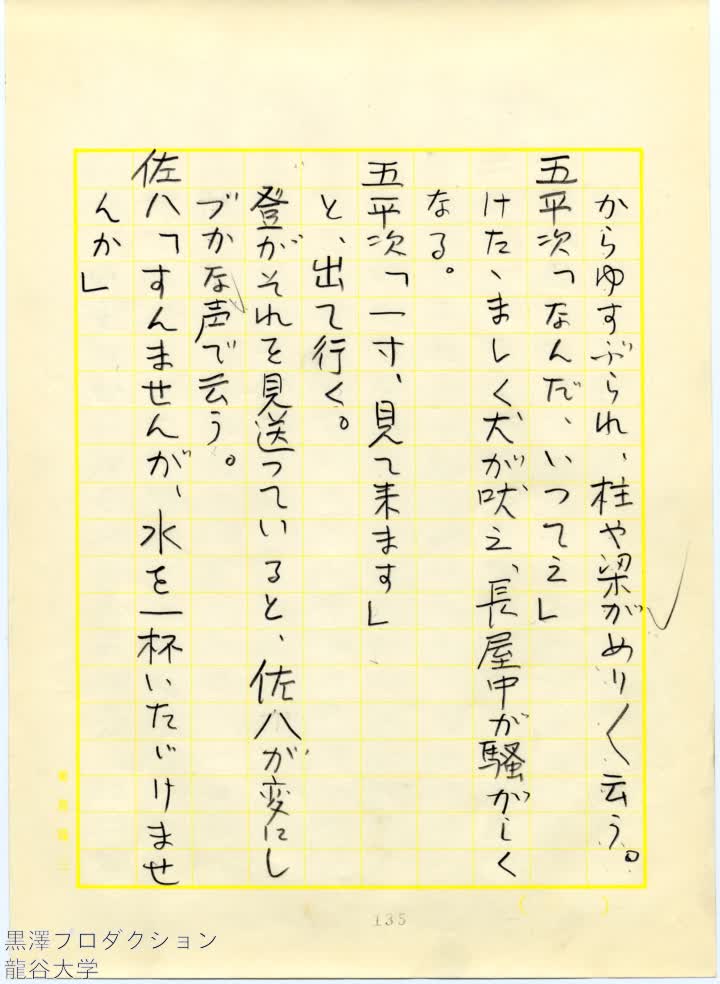 からゆすぶられ、柱や梁がめり〱云う。
五平次「なんだ、いつてえ」
けたゝましく犬が吠え、長屋中が騒がしく
なる。
五平次「一寸、見て来ます」
と、出て行く。
登がそれを見送つていると、佐八が変にし
づかな声で云う。
佐八「すんませんが、水を一杯いたゞけませ
んか」
135
黒澤プロダクション
龍谷大学